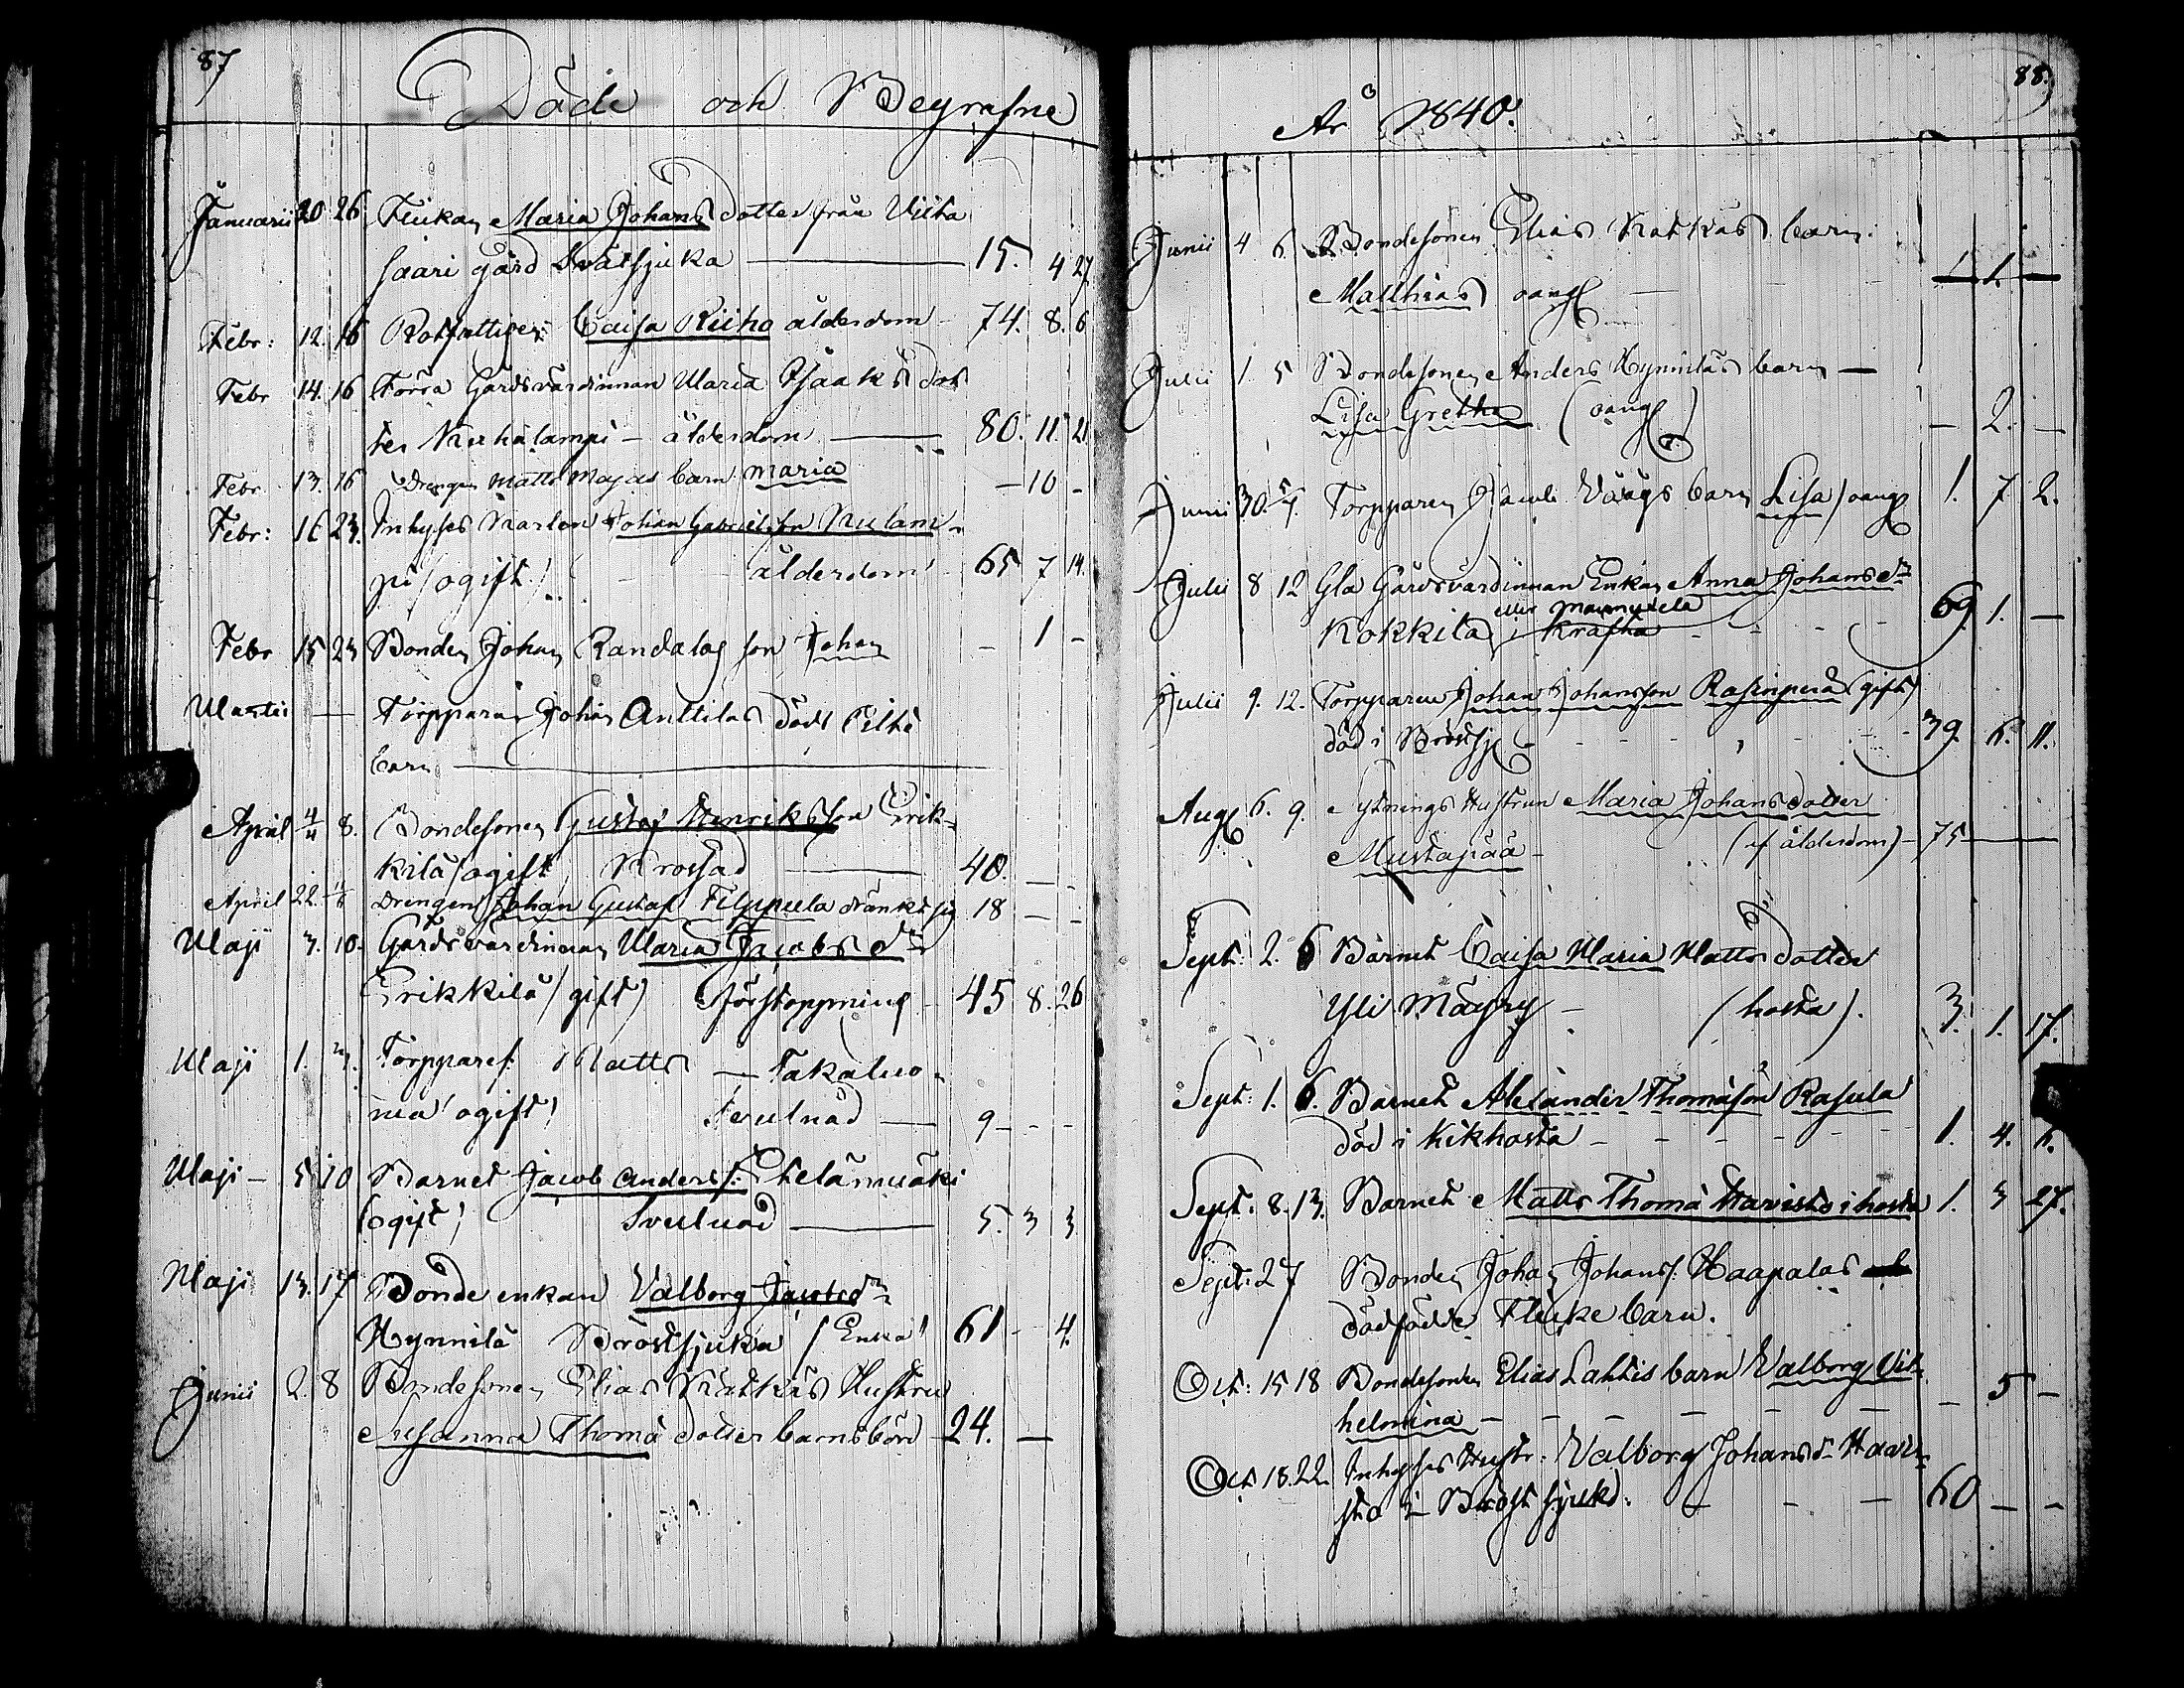 87
Döde och Begrafne
Januarii 20 26 Flickan Maria Johans dotter från Viita
saari gård Svätsjuka 15. 4 27
Febr: 12. 16 Rotfattige Caisa Riiho ålderdom 74. 8. 6
Febr 14. 16 Förra Gårdsvärdinnan Maria Isaks dot
ter Kuhalampi - ålderdom 80. 11. 21
Febr 13. 16 Drengen Matts Majas barn Maria - 10 -
Febr: 16 23. Inhyses Karlen Johan Gabrielsson Kulam-
pi (ogift) ålderdom 65 7 14.
Febr 15 23 Bonden Johan Randalas son Johan - 1 -
Martii Torpparen Johan Anttilas död
barn
April 4/4 8. Bondesonen Gustaf Henriksson Erik-
kilä (ogift) Krossad 40. - -
April 22. Drengen Johan Gustaf Filppula dränkt sig 18 - -
Maji 3. 10. Gårdsvärdinnan Maria Jacobs dr
Erikkilä (gift) förstoppning - 45 8. 26
Maji 1. 3. Torpares. Matts - Takaluo-
ma (ogift) 9 - - -
Maji - 5 10 Barnet Jacob Anders s. Etelämäki
(ogift) Svulnad 5. 3 3
Maji 13. 17 Bonde enkan Valborg Jacobsdr
Hynnilä Bröstsjuka (Enka) 61 - 4.
Junii 2. 8 Bondesonen Elias Katkas Hustru
Susanna Thomä dotter barnsbörd 24. -
88.
År 1840.
Junii 4 6. Bondesonen Elias Katkas barn
Matthias oang - 1. -
Julii 1. 5 Bondesonen Anders Hynniläs barn -
Lisa Gretha (oang) - 2. -
Junii 30. 5/7. Torpparen Jacob Väägs barn Lisa (oang 1. 7 2.
Julii 8 12 Gla Gårdsvärdinnan Enkan Anna Johans dr
eller
Kokkila i kräfta 69. 1. -
Julii 9. 12. Torpparen Johan Johansson Rasinperä (gift)
död i Bröstsj 39. 6. 11.
Aug 6. 9. Sytnings Hustrun Maria Johans dotter
Mustapää - (af ålderdom) - 75
Sept: 2. 6 Barnet Caisa Maria Matts dotter
Yli Mäyry - (hosta). 3. 1. 17.
Sept: 1. 6. Barnet Alexander Thomäson Rasula
död i Kikhosta 1. 4. 6.
Sept. 8. 13. Barnet Matts Thomä Harvisto i hosta 1. 3 27.
Sept: 27 Bonden Johan Johans s. Haapalas
dödfödde Flicke barn.
Oct: 15 18 Bondesonen Elias Lahtis barn Valborg Vil-
helmina - 5 -
Oct 18. 22. Inhyses Hustr: Valborg Johans dr Haavi-
sto i Bröst sjukd. 60 - -